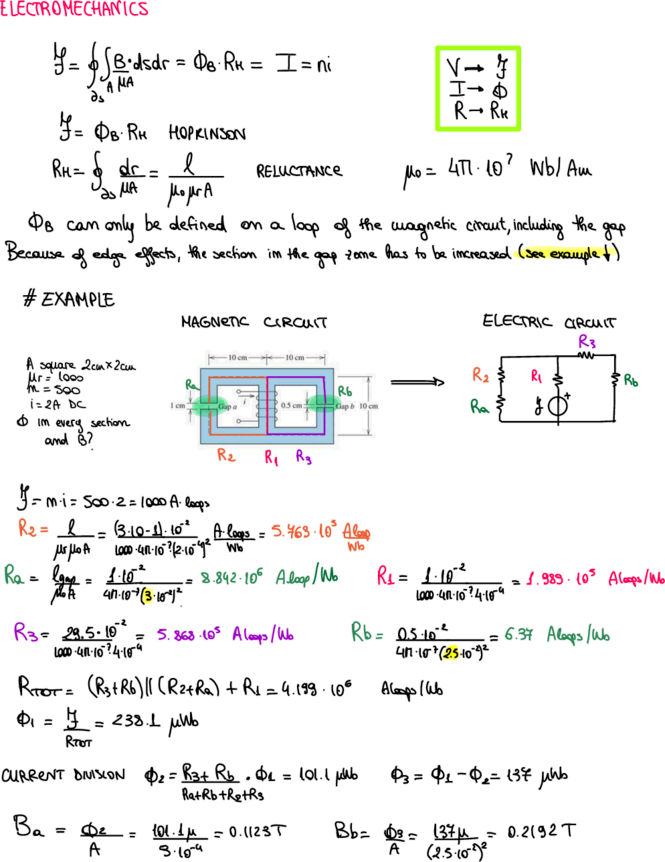 ELECTROMECHANICS
ℱ = ∮∂s ∫A B/μA · ds dr = ΦB · RH = I = ni
V → ℱ
I → Φ
R → RH
ℱ = ΦB · RH HOPKINSON
RH = ∮∂s dr/μA = l/μ0 μr A RELUCTANCE μ0 = 4π · 10⁷ Wb/Am
ΦB can only be defined on a loop of the magnetic circuit, including the gap
Because of edge effects, the section in the gap zone has to be increased (see example ↓)
# EXAMPLE
MAGNETIC CIRCUIT ELECTRIC CIRCUIT
A square 2cm×2cm
μr = 1000
n = 500
i = 2A DC
Φ in every section
and B?
10 cm 10 cm
Ra Rb
1 cm Gap a i 0.5 cm Gap b 10 cm
R2 R1 R3
R3
R2 R1 Rb
Ra ℱ +
ℱ = n·i = 500·2 = 1000 A·loops
R2 = l/μr μ0 A = (3·10-1)·10⁻²/1000·4π·10⁻⁷·(2·10⁻²)² A·loops/Wb = 5.769·10⁵ A loop/Wb
Ra = lgap/μ0 A = 1·10⁻²/4π·10⁻⁷(3·10⁻²)² = 8.842·10⁶ A loop/Wb R1 = 1·10⁻²/1000·4π·10⁻⁷·4·10⁻⁴ = 1.989·10⁵ A loops/Wb
R3 = 29.5·10⁻²/1000·4π·10⁻⁷·4·10⁻⁴ = 5.868·10⁵ A loops/Wb Rb = 0.5·10⁻²/4π·10⁻⁷(2.5·10⁻²)² = 6.37 A loops/Wb
RTOT = (R3+Rb)||(R2+Ra) + R1 = 4.199·10⁶ A loops/Wb
Φ1 = ℱ/RTOT = 238.1 μWb
CURRENT DIVISION Φ2 = R3+Rb/Ra+Rb+R2+R3 · Φ1 = 101.1 μWb Φ3 = Φ1 - Φ2 = 137 μWb
Ba = Φ2/A = 101.1μ/9·10⁻⁴ = 0.1123T Bb = Φ3/A = 137μ/(2.5·10⁻²)² = 0.2192 T